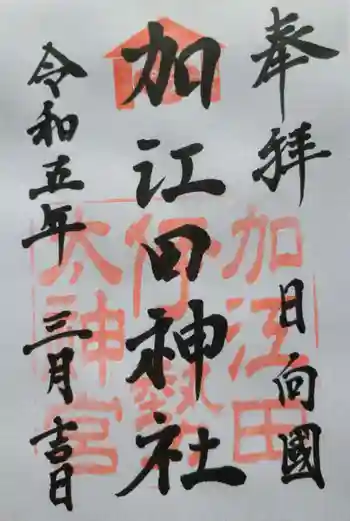 奉拝 日向國
加江田神社
令和五年 三月 吉日
加江田
伊勢
太神宮